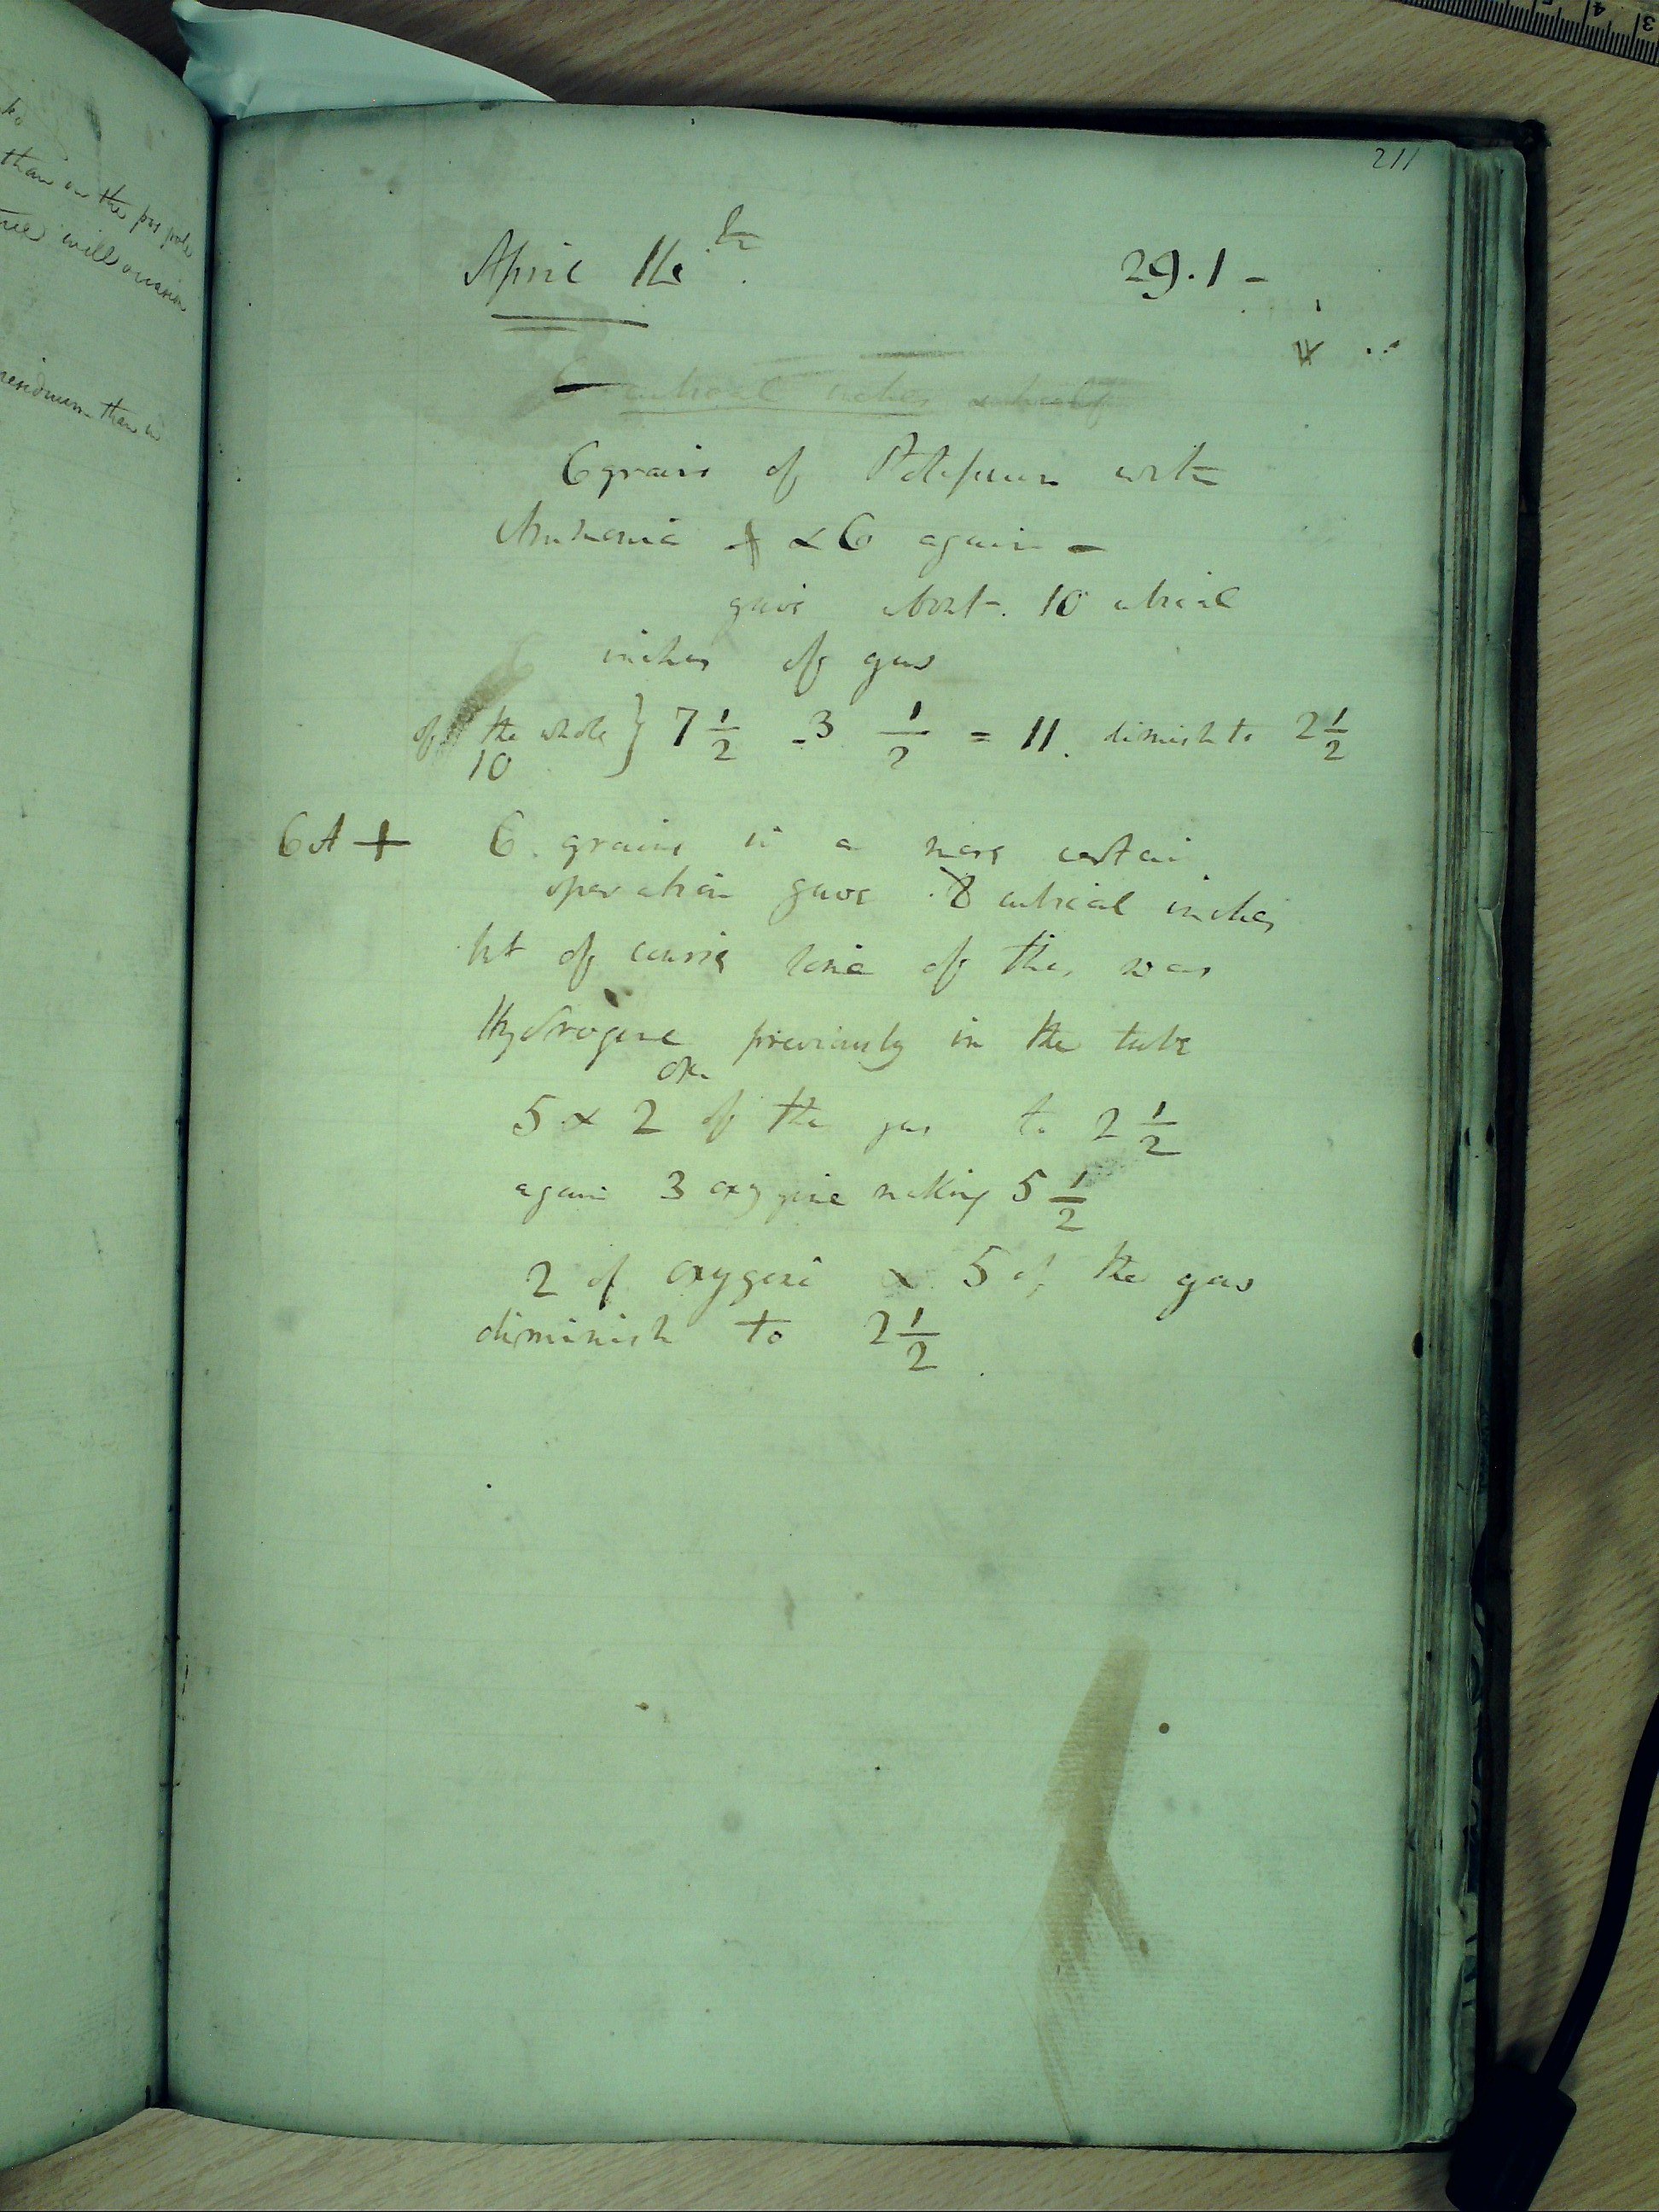 to
than on the pos pole
will occasion
residuum than in
211
April 16th.
29.1 -
cubical inches
6 grains of Potassium with
Ammonia + & 6 again -
gave about 10 cubical
inches of gas
of the whole } 7 1/2 - 3 1/2 = 11. diminish to 2 1/2
10
6 A + 6 grains in a more certain
operation gave 8 cubical inches
but of course some of this was
Hydrogene previously in the tube
ox.
5 & 2 of the gas to 2 1/2
again 3 oxygene making 5 1/2
2 of oxygene & 5 of the gas
diminish to 2 1/2
5 4 3